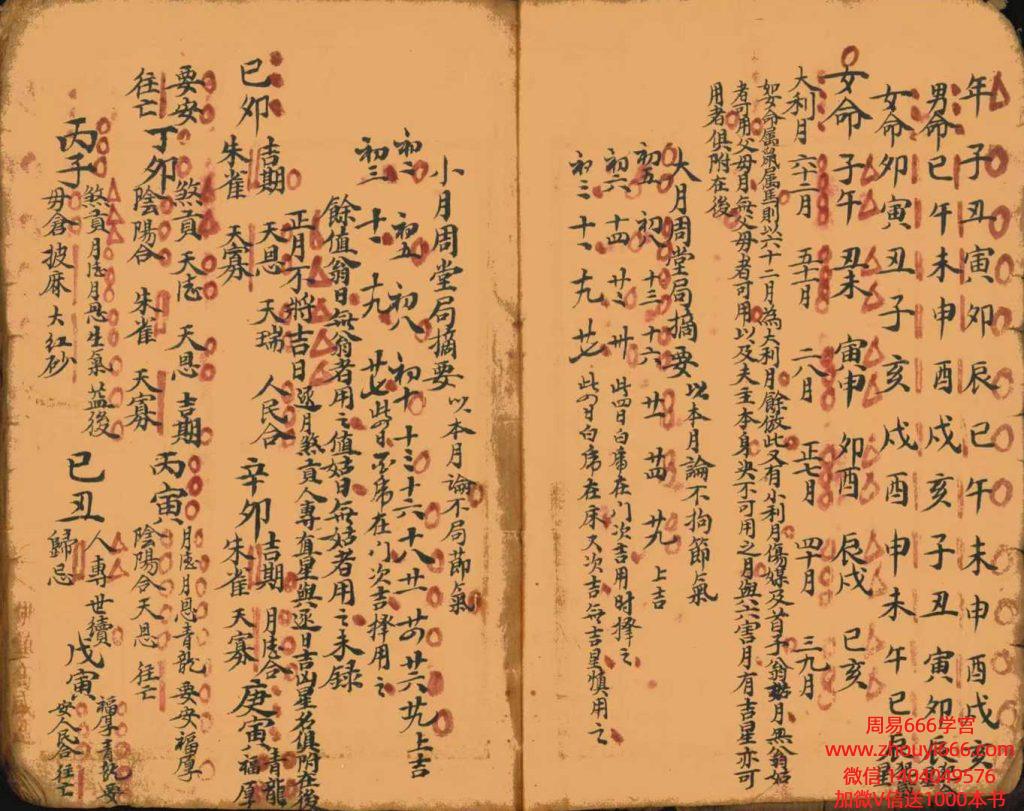 年 子 丑 寅 卯 辰 巳 午 未 申 酉 戌 亥
男命 巳 午 未 申 酉 戌 亥 子 丑 寅 卯 辰
女命 卯 寅 丑 子 亥 戌 酉 申 未 午 巳 辰
女命 子午 丑未 寅申 卯酉 辰戌 巳亥
大利月 六十二月 五十一月 二八月 正七月 四十月 三九月
如女命屬鼠屬馬則以六十二月為大利月餘倣此又有小利月傷媒及首子翁姑月無翁姑
者可用父母月無父母者可用以及夫主本身決不可用之月與六害月有吉星亦可
用者俱附在後
大月周堂局摘要 以本月論不拘節氣
初五 初八 十三 十六 廿一 廿四 廿九 上吉
初六 十四 廿二 卅 此四日白席在门次吉用时擇之
初三 十一 十九 廿七 此四日白席在床又次吉無吉星慎用之
小月周堂局摘要 以本月論不局節氣
初二 初五 初八 初十 十三 十六 十八 廿一 廿四 廿六 廿九 上吉
初三 十一 十九 廿七 此四日白席在门次吉擇用之
餘值翁日無翁者用之值姑日無姑者用之未録
正月丁將吉日逐月煞貢人專直星與逐日吉凶星名俱附在後
己卯 吉期 天恩 天瑞 人民合
朱雀 天寡
辛卯 吉期 月德合
朱雀 天寡
庚寅 青龍
福厚
要安
往亡
丁卯 煞貢 天德 天恩 吉期
陰陽合 朱雀 天寡
丙寅 月德月恩青龍要安福厚
陰陽合天恩 往亡
丙子 煞貢月德月恩生氣益後
毋倉 披麻 大红砂
己丑 人專 世續
歸忌
戊寅 福厚青龍要
安人民合往亡
周易666学宫
www.zhouyi666.com
微信 1404049576
加微V信送1000本书